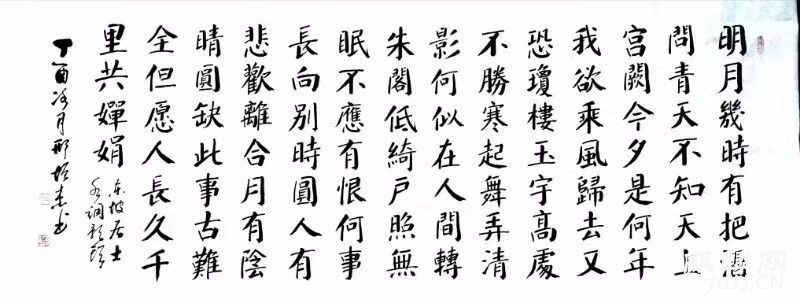 明月幾時有把酒
問青天不知天上
宮闕今夕是何年
我欲乘風歸去又
恐瓊樓玉宇高處
不勝寒起舞弄清
影何似在人間轉
朱閣低綺戶照無
眠不應有恨何事
長向別時圓人有
悲歡離合月有陰
晴圓缺此事古難
全但愿人長久千
里共嬋娟
东坡居士
水调歌頭
丁酉 月邢培 书